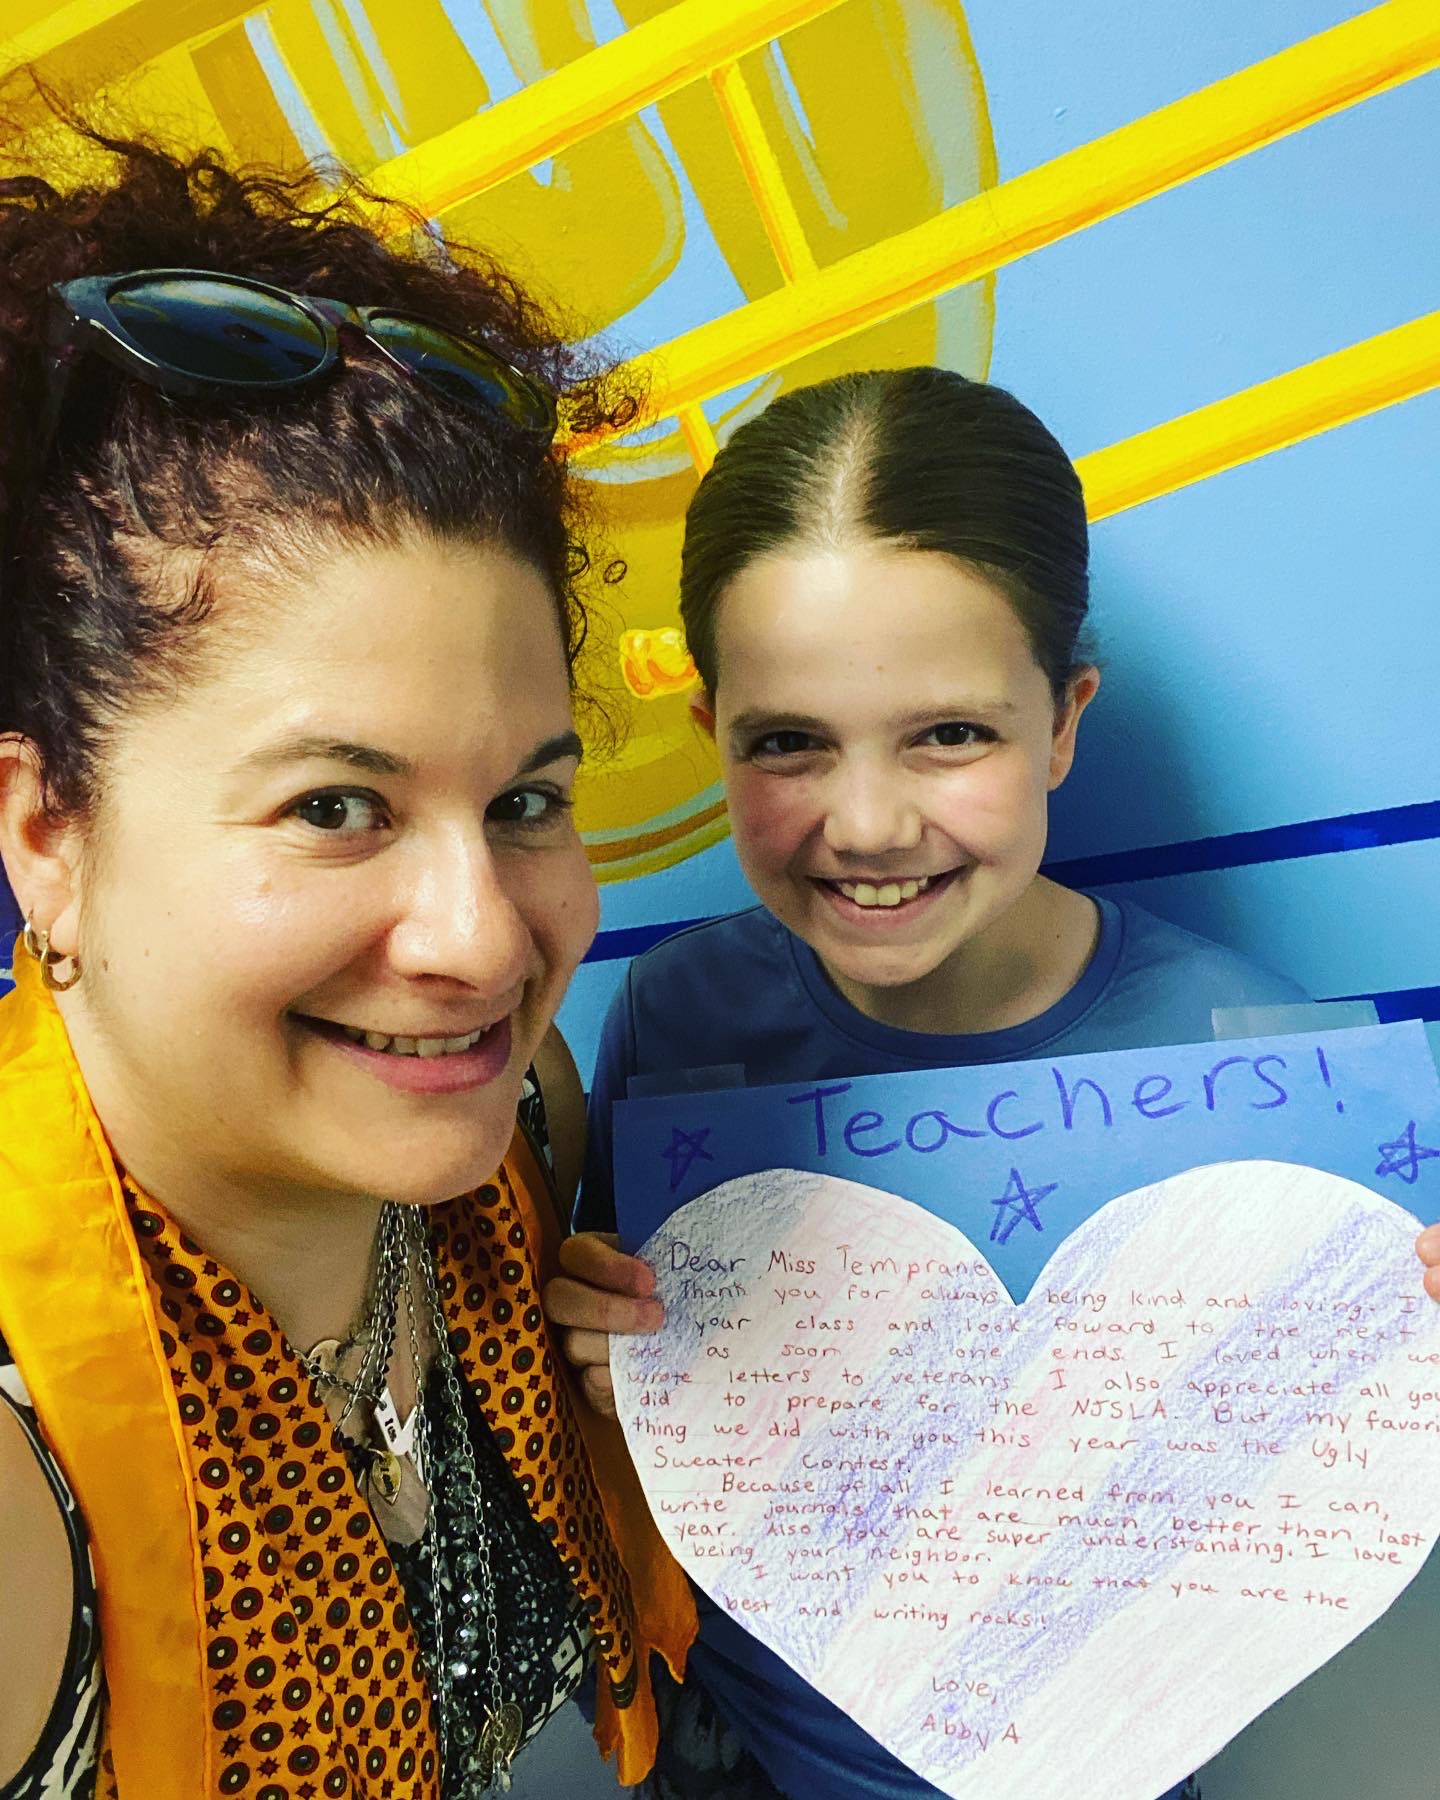 Teachers!
Dear Miss Temprano
Thank you for always being kind and loving. I
your class and look foward to the next
one as soon as one ends. I loved when we
wrote letters to veterans. I also appreciate all you
did to prepare for the NJSLA. But my favori
thing we did with you this year was the Ugly
Sweater Contest.
Because of all I learned from you I can,
write journals that are much better than last
year. Also you are super understanding. I love
being your neighbor.
I want you to know that you are the
best and writing rocks!
Love,
Abby A